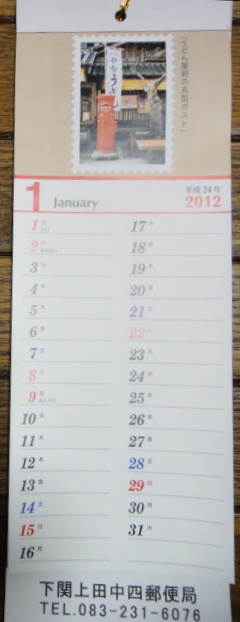 「うどん屋前の丸型ポスト」
うどん
1 January
平成24年
2012
1 日
2 月
3 火
4 水
5 木
6 金
7 土
8 日
9 月
10 火
11 水
12 木
13 金
14 土
15 日
16 月
17 火
18 水
19 木
20 金
21 土
22 日
23 月
24 火
25 水
26 木
27 金
28 土
29 日
30 月
31 火
下関上田中四郵便局
TEL.083-231-6076